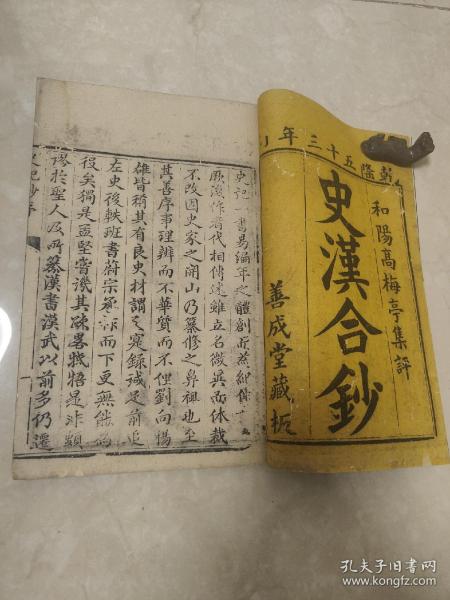 乾隆五十三年
和陽高梅亭集評
史漢合鈔
善成堂藏板
史記一書易編年之體創
厥後作者代相傳述雖立名微異而体裁
不改因史家之開山乃纂修之鼻祖也至
其善序事理辨而不華質而不俚劉向楊
雄皆稱其有良史材謂之寔錄誠足前追
左史後軼班書蔚宗
而下更無能
役矣獨是孟堅嘗譏其疎畧牴牾是非頗
謬於聖人及所纂漢書漢武以前多仍遷
史記鈔序
孔夫子旧书网
www.kongfz.com